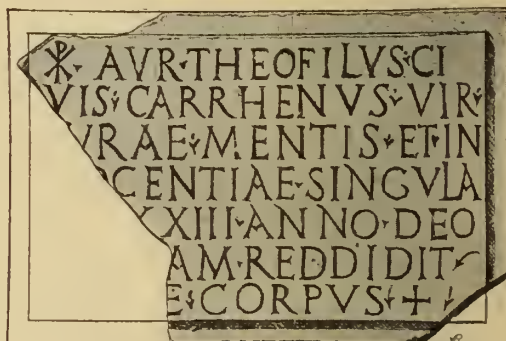 ☧· AVR·THEOFILVS·CI
VIS·CARRHENVS·VIR·
VRAE·MENTIS·ET·IN
OCENTIAE·SINGVLA
XXIII·ANNO·DEO
AM·REDDIDIT
E·CORPVS·+